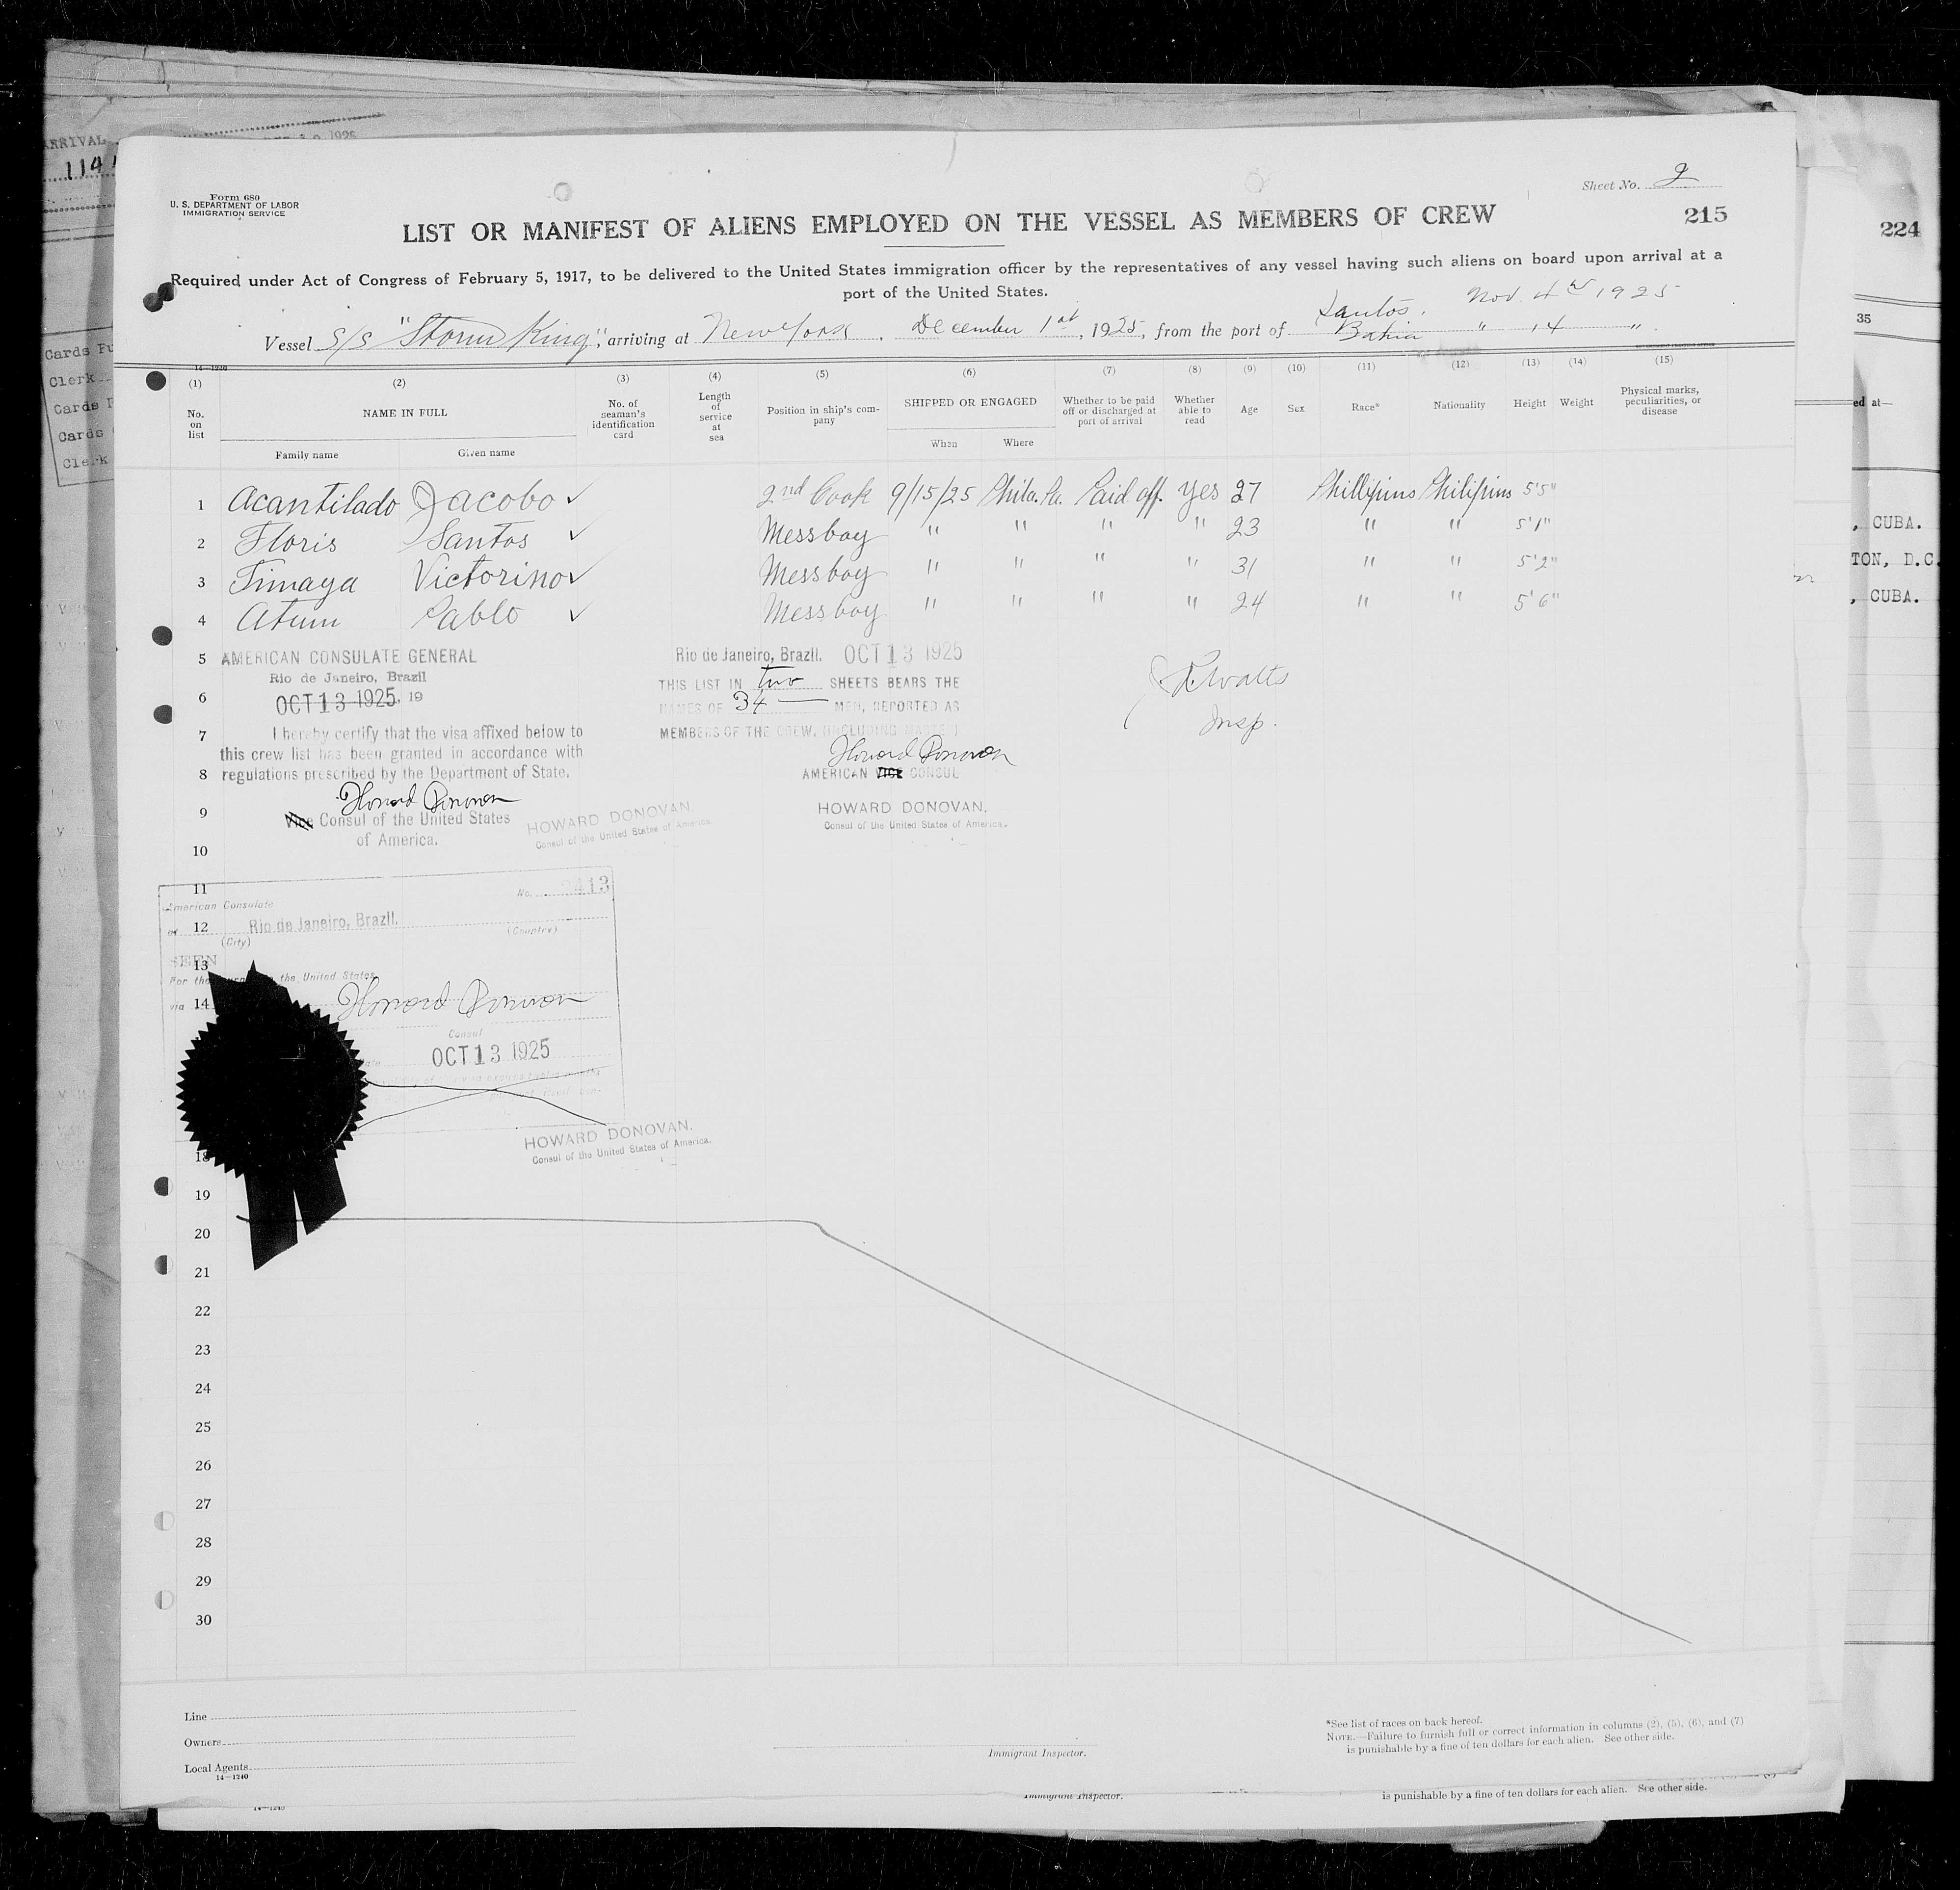 ARRIVAL
114
1926
Form 680
U. S. DEPARTMENT OF LABOR
IMMIGRATION SERVICE
Sheet No. 2
LIST OR MANIFEST OF ALIENS EMPLOYED ON THE VESSEL AS MEMBERS OF CREW
215
224
Required under Act of Congress of February 5, 1917, to be delivered to the United States immigration officer by the representatives of any vessel having such aliens on board upon arrival at a
port of the United States.
Santos. Nov. 4th 1925
Vessel S/S "Storm King", arriving at New York, December 1st, 1925, from the port of Bahia " 14 "
35
14—1240
(1) (2) (3) (4) (5) (6) (7) (8) (9) (10) (11) (12) (13) (14) (15)
No. on list
NAME IN FULL
Family name Given name
No. of seaman's identification card
Length of service at sea
Position in ship's company
SHIPPED OR ENGAGED
When Where
Whether to be paid off or discharged at port of arrival
Whether able to read
Age Sex Race* Nationality Height Weight
Physical marks, peculiarities, or disease
ed at—
Cards Fu
Clerk
Cards F
Cards
Clerk
1 Acantilado Jacobo ✓ 2nd Cook 9/15/25 Phila. Pa. Paid off. Yes 27 Phillipins Philipins 5'5"
2 Floris Santos ✓ Messboy " " " " 23 " " 5'1"
3 Timaya Victorino ✓ Messboy " " " " 31 " " 5'2"
4 Atum Pablo ✓ Messboy " " " " 24 " " 5'6"
, CUBA.
TON, D.C.
, CUBA.
5 AMERICAN CONSULATE GENERAL
Rio de Janeiro, Brazil
6 OCT 13 1925, 19
7 I hereby certify that the visa affixed below to
this crew list has been granted in accordance with
8 regulations prescribed by the Department of State.
Howard Donovan
9 Vice Consul of the United States
of America.
10
HOWARD DONOVAN
Consul of the United States of America.
Rio de Janeiro, Brazil. OCT 13 1925
THIS LIST IN two SHEETS BEARS THE
NAMES OF 34 — MEN, REPORTED AS
MEMBERS OF THE CREW. (INCLUDING MASTER)
Howard Donovan
AMERICAN VICE CONSUL
HOWARD DONOVAN.
Consul of the United States of America.
Watts
Insp.
11 No. 413
American Consulate
at 12 Rio de Janeiro, Brazil.
(City) (Country)
SEEN
13
For the the United States
via 14 Howard Donovan
Consul
OCT 13 1925
HOWARD DONOVAN.
Consul of the United States of America.
18
19
20
21
22
23
24
25
26
27
28
29
30
Line
Owners
Local Agents
14—1240
Immigrant Inspector.
*See list of races on back hereof.
NOTE.—Failure to furnish full or correct information in columns (2), (5), (6), and (7)
is punishable by a fine of ten dollars for each alien. See other side.
14—1240
Immigrant Inspector.
is punishable by a fine of ten dollars for each alien. See other side.